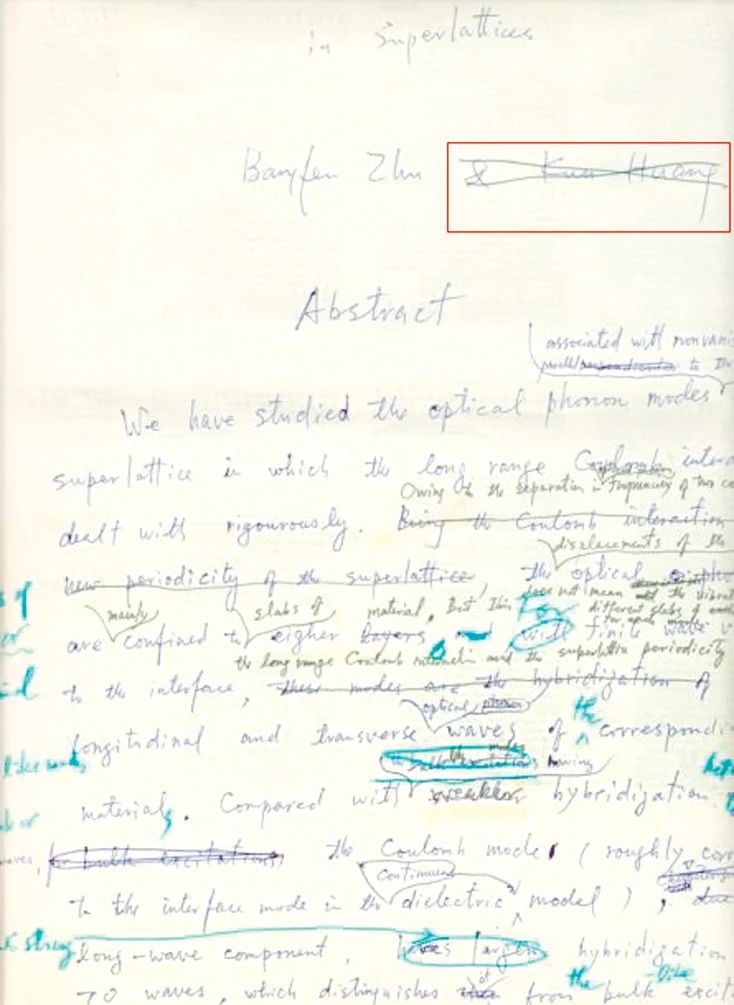 in Superlattices
Bangfen Zhu & Kun Huang
Abstract
associated with nonvanis
to the
We have studied the optical phonon modes
superlattice in which the long range Coulomb intera
Owing to the separation in frequency of two co
dealt with rigourously. Being the Coulomb interaction
displacements of the
new periodicity of the superlattice, the optical
does not mean the vibrat
mainly slabs of material, But this For different slabs of
are confined to eigher layers and with finit wave v
the long range Coulomb interaction and the superlattice periodicity
to the interface, these modes are the hybridization of
optical phonon
the
longitudinal and transverse waves of correspondi
bulk excitations having
materials. Compared with weaker hybridization
waves, for bulk excitations, the Coulomb modes (roughly corr
continuum
to the interface mode in the dielectric model), due
strong long-wave component, has larger hybridization
of the -like
TO waves, which distinguishes from bulk excit